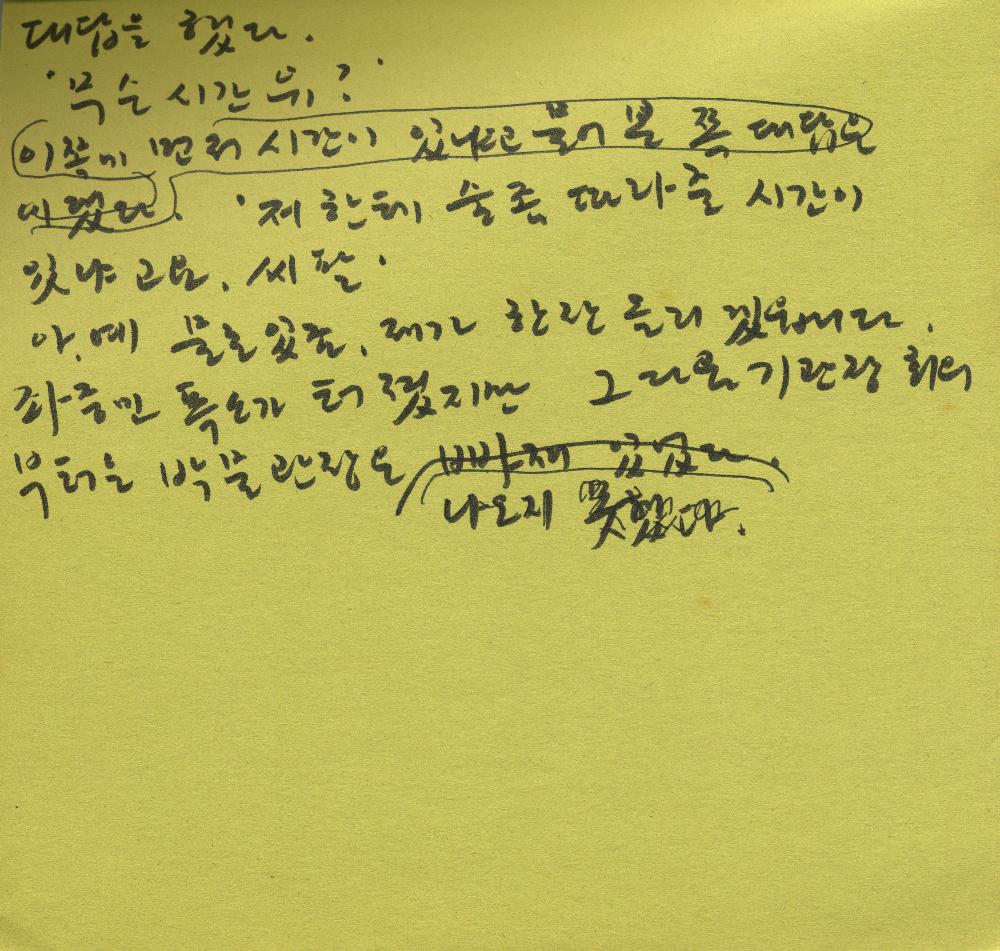 대답을 했다.
'무슨 시간 뮈?'
이쪽이 먼저 시간이 있냐고 물어 본 쪽 대답은
이랬다. '저 한테 술 좀 따라줄 시간이
있냐고요, 씨팔'
아, 예 물론 있죠, 제가 한잔 올리 겠습니다.
좌중만 폭소가 터 졌지만 그 다음 기관장 회의
부터는 박물관장은 빠져 있었다.
나오지 못했다.